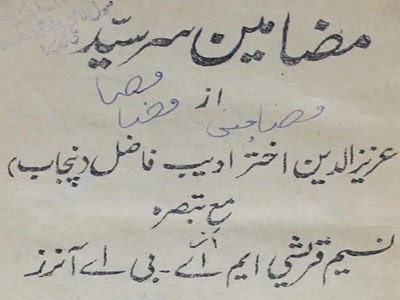 مضامین سرسیّد
مضا
از
مضا
عزیزالدین اختر ادیب فاضل (پنجاب)
مع تبصرہ
نسیم قریشی ایم اے - بی اے آنرز